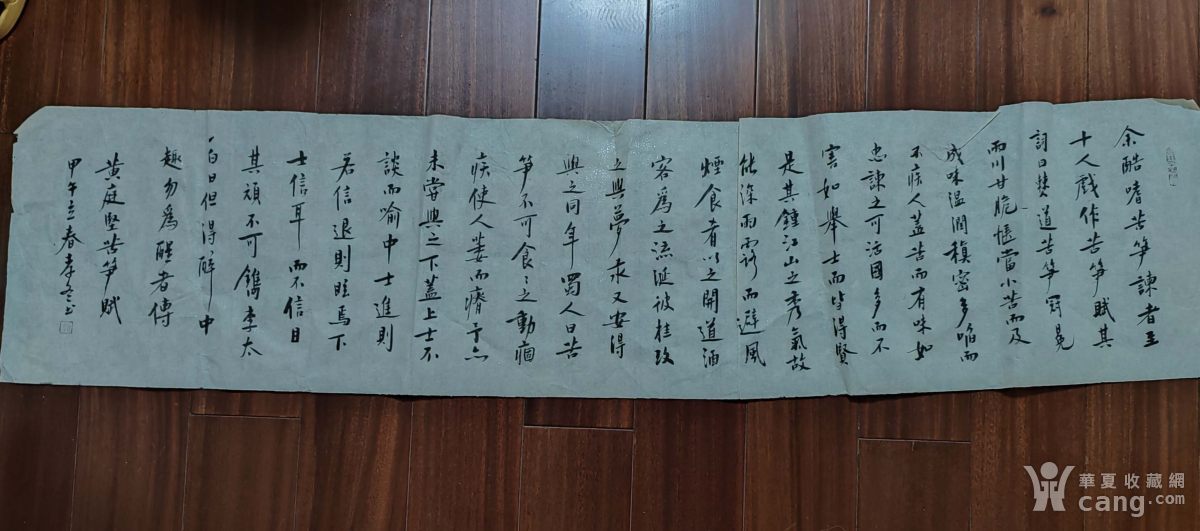 余酷嗜苦笋諫者至
十人戲作苦笋賦其
詞曰僰道苦笋冠冕
兩川甘脆愜當小苦而及
成味温潤稹密多啗而
不疾人蓋苦而有味如
忠諫之可活國多而不
害如舉士而皆得賢
是其鍾江山之秀氣故
能深雨露而避風
煙食肴以之開道酒
客爲之流涎彼桂玫
之與夢永又安得
與之同年蜀人曰苦
笋不可食食之動痼
疾使人萎而瘠予亦
未嘗與之下蓋上士不
談而喻中士進則
若信退則眩焉下
士信耳而不信目
其頑不可鐫李太
白曰但得醉中
趣勿爲醒者傳
黃庭堅苦笋賦
甲午立春
華夏收藏網
cang.com